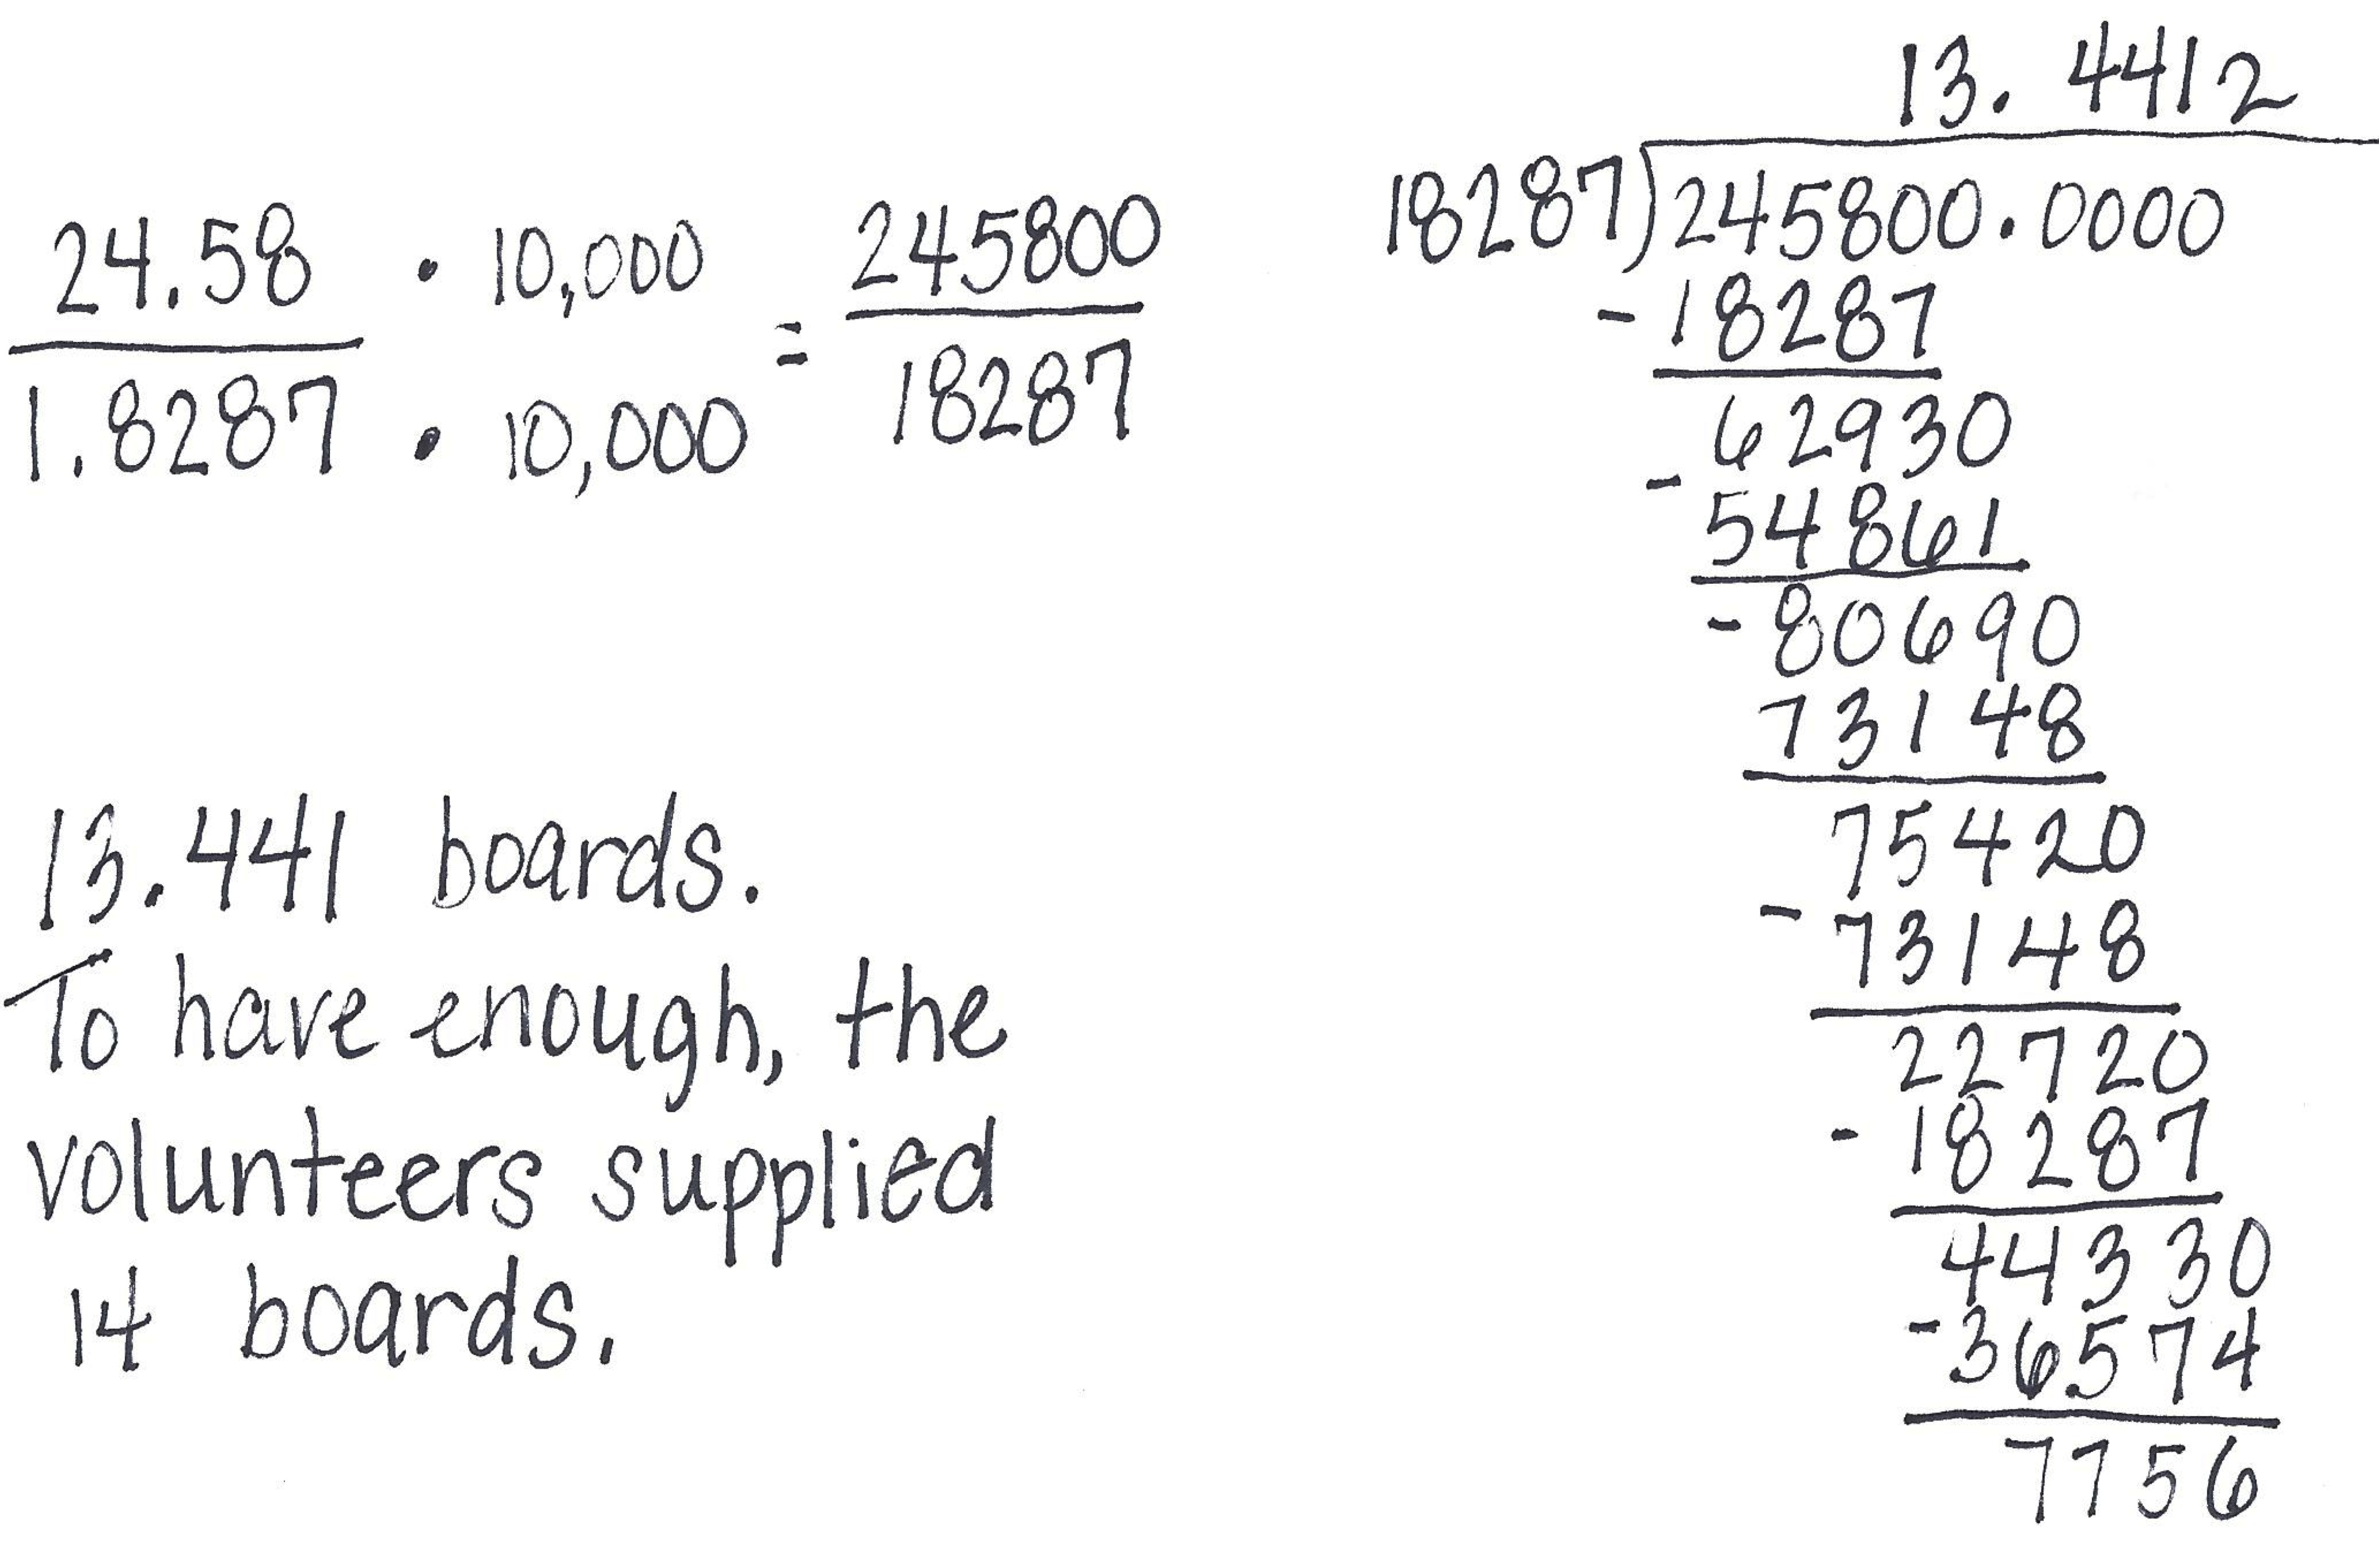 24.58 · 10,000 = 245800
1.8287 · 10,000 18287
13.441 boards.
To have enough, the
volunteers supplied
14 boards.
13.4412
18287)245800.0000
-18287
62930
-54861
-80690
73148
75420
-73148
22720
-18287
44330
-36574
7756